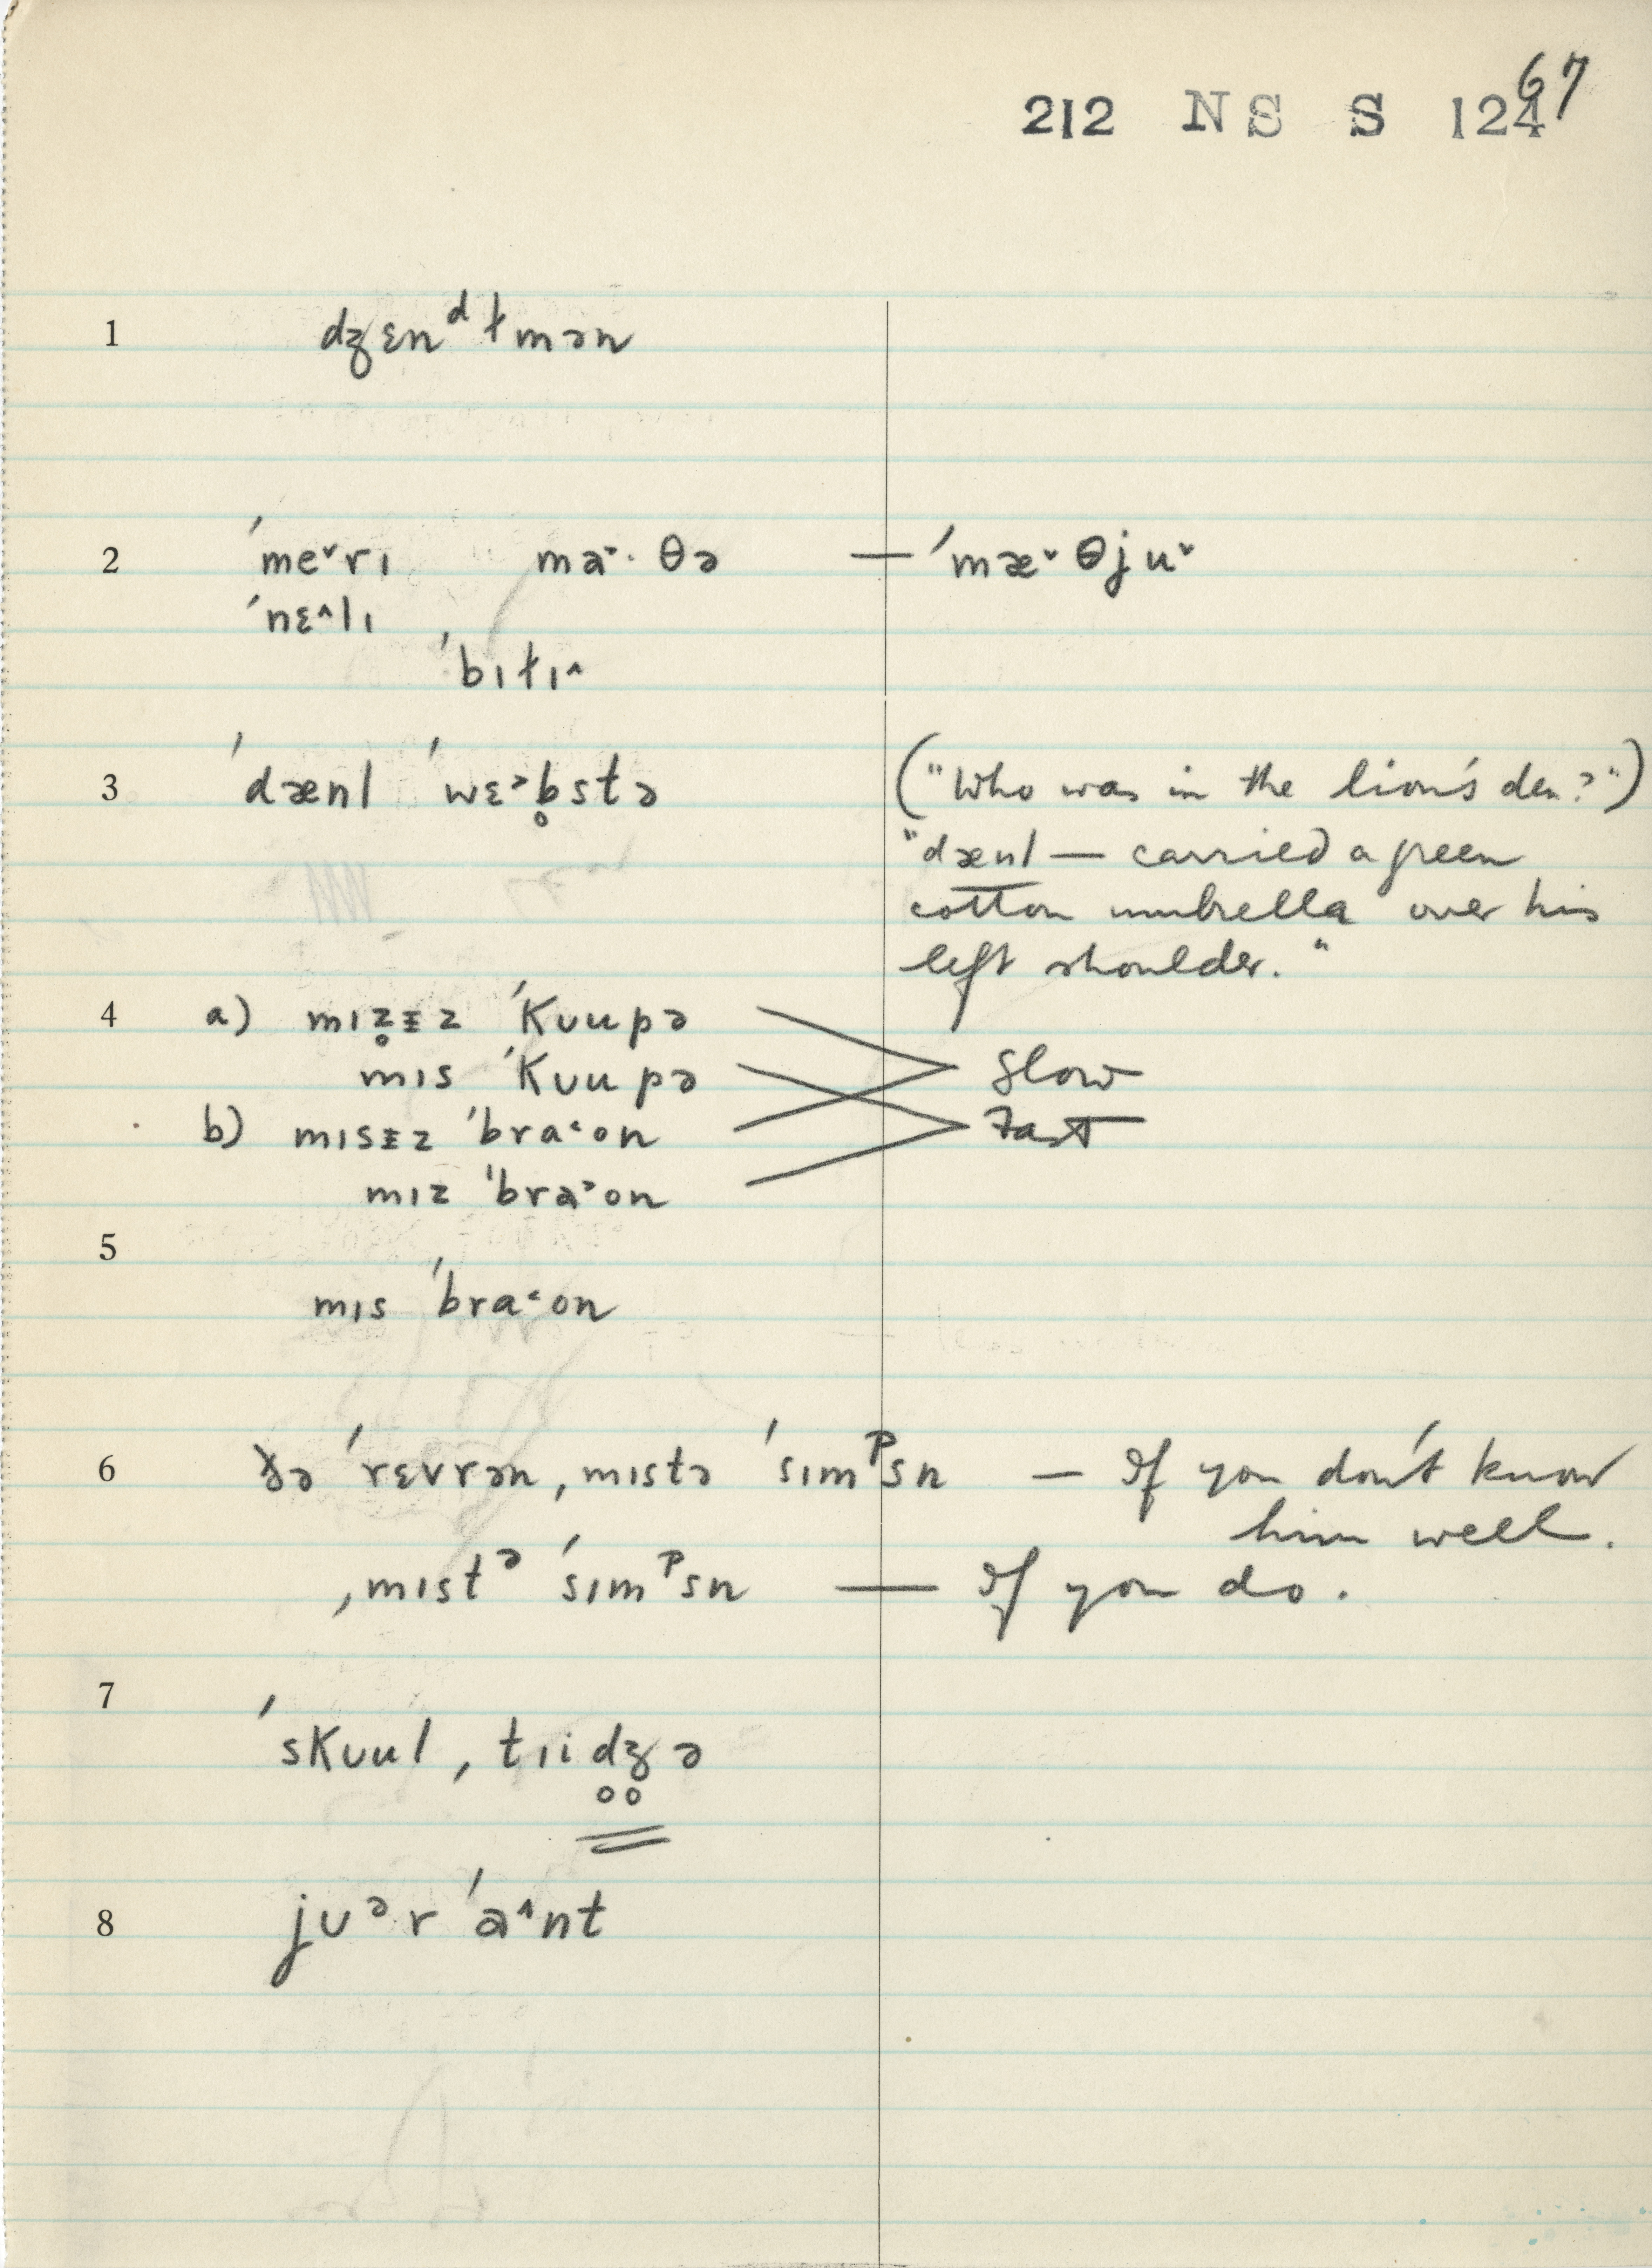 67
212 NS S 124
1 dʒɛnᵈɫmən
2 ˈme˅rɪ ma˃·θə — ˈmæ˅θju˅
ˈnɛ^lɪ
ˈbɪɫɪ^
3 ˈdænl ˈwɛ˃b̥stə ("Who was in the lion's den?")
"dænl — carried a green
cotton umbrella over his
left shoulder."
4 a) mɪz̥ɨz ˈkuupə Slow
mɪs ˈkuupə Fast
b) mɪsɨz ˈbra˂on
mɪz ˈbra˃on
5
mɪs ˈbra˂on
6 ðə ˈrɛvrən, mɪstə ˈsɪmᴾsn — If you don't know
him well.
ˌmɪstᵊ ˈsɪmᴾsn — If you do.
7
ˈskʊul ˌtɪid̥ʒ̥ə
8 jʊᵊr ˈa^nt